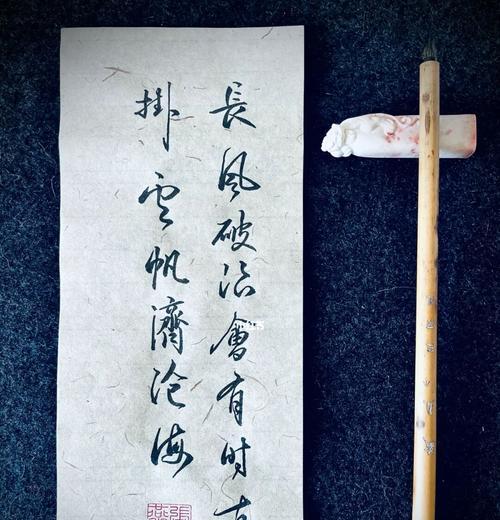 長風破浪會有时
掛雲帆濟沧海